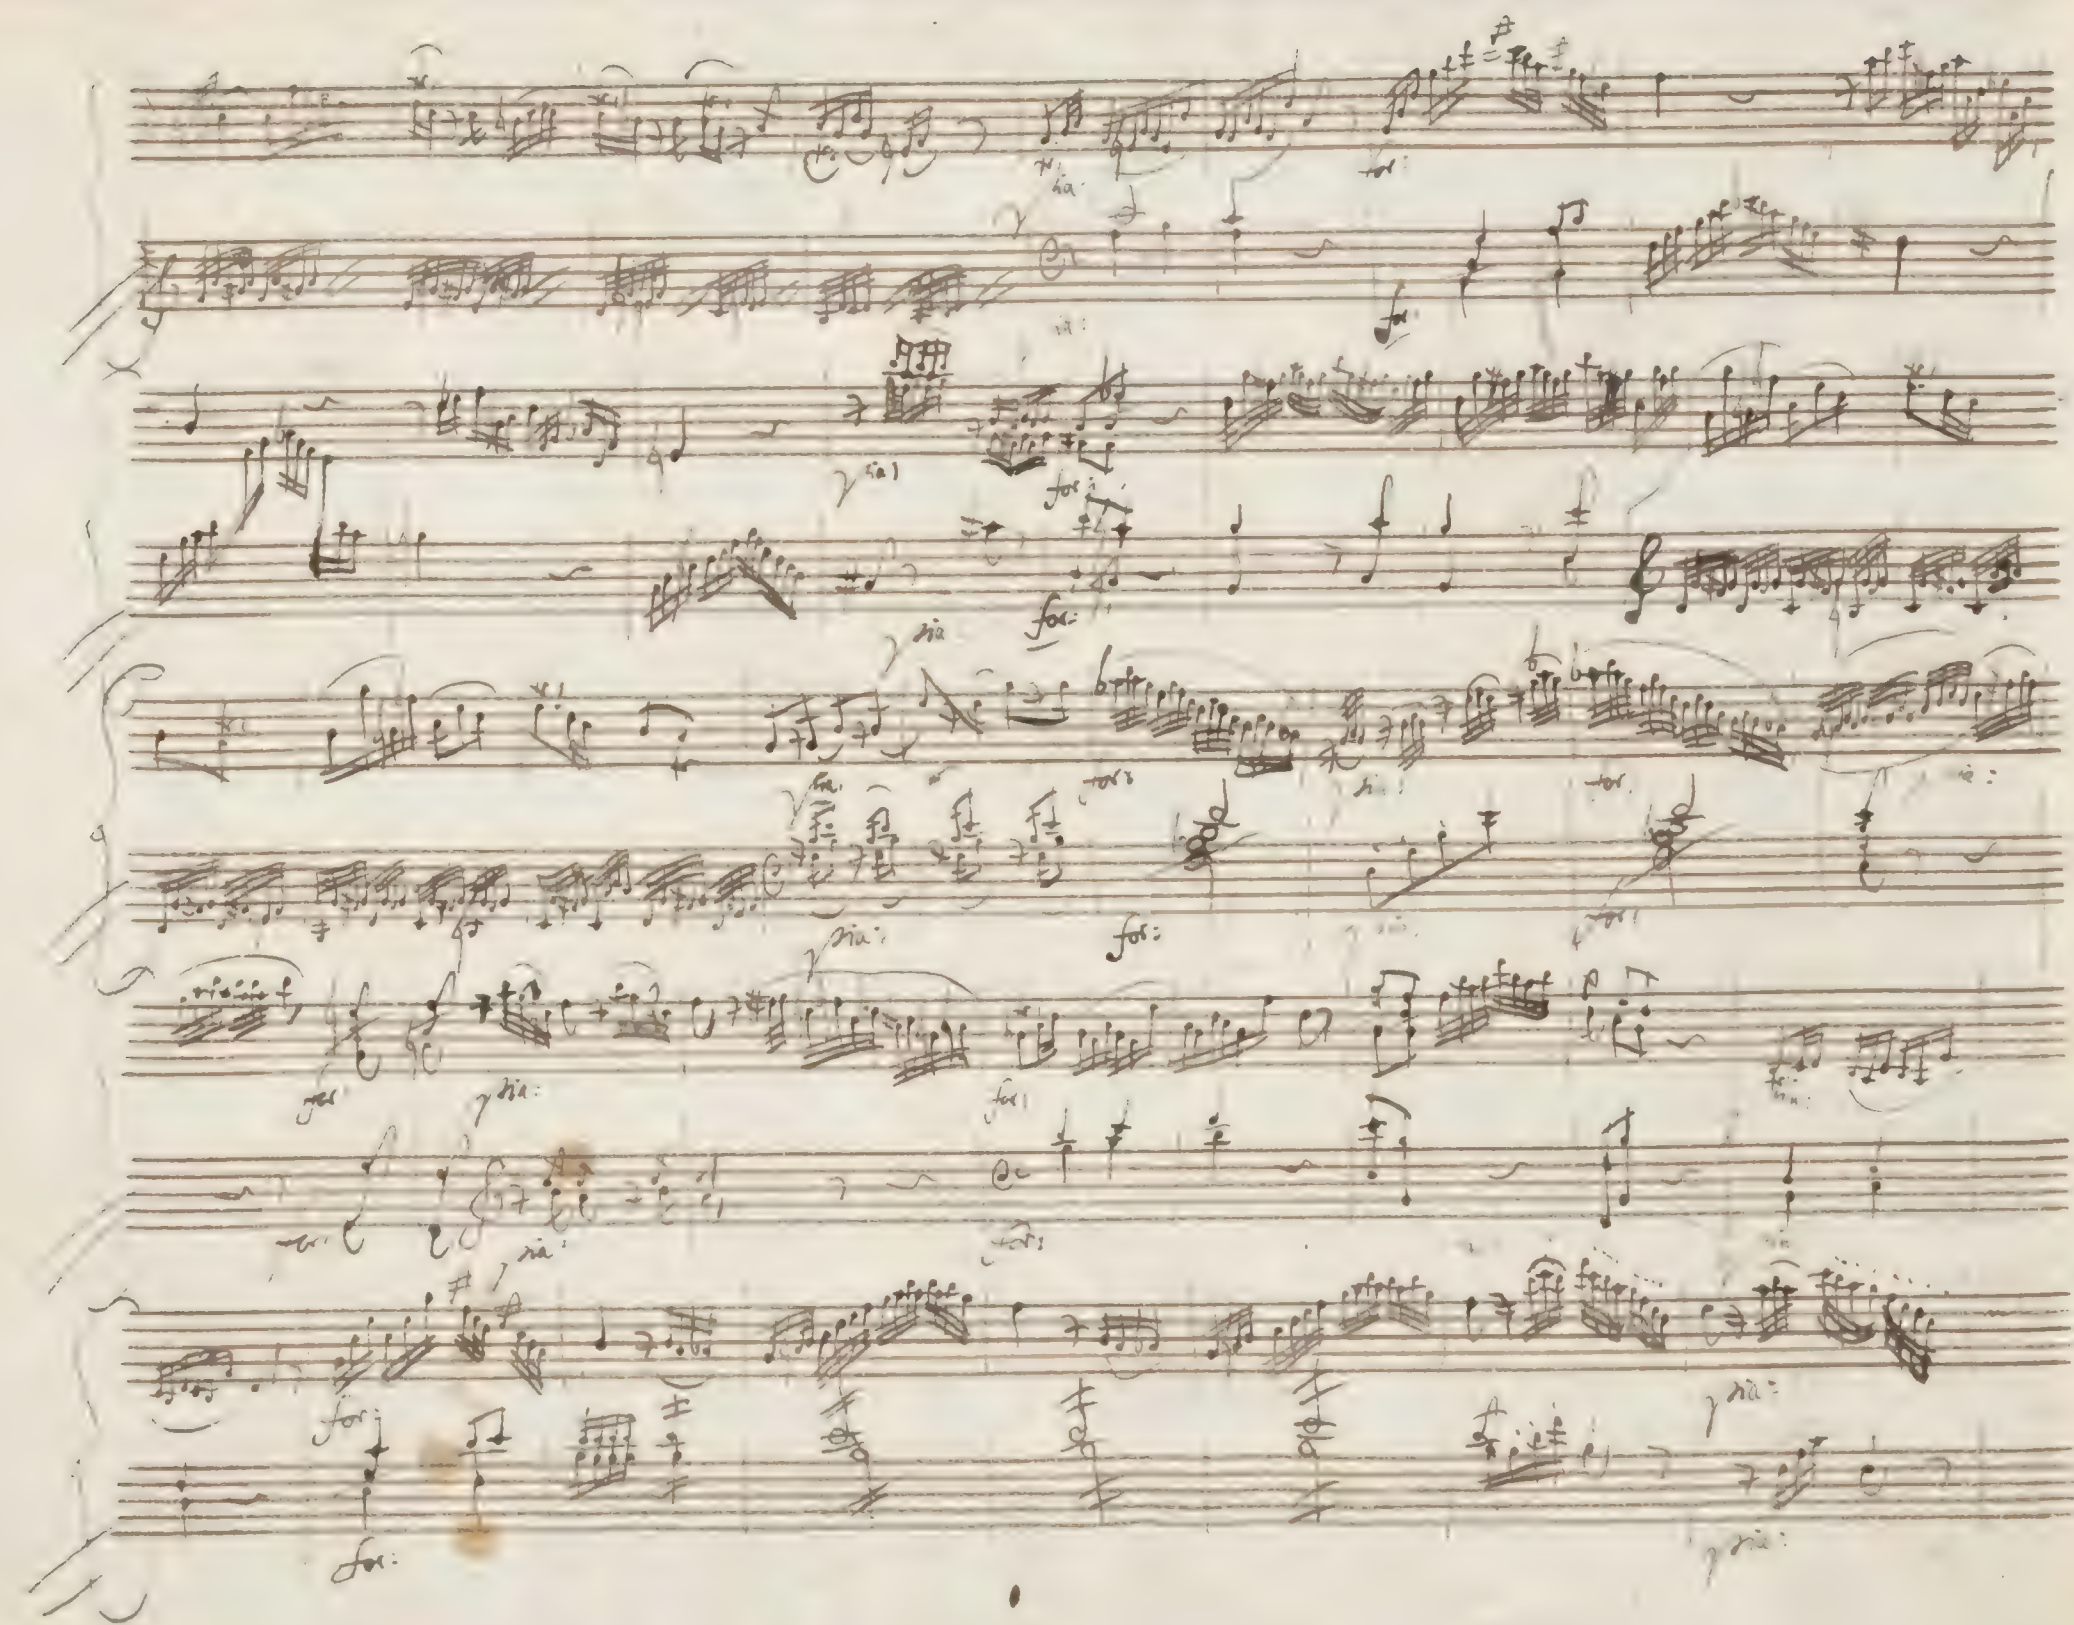 tr: pia: for:
for:
pia: for:
pia for:
pia: for: pia: for: pia:
pia: for: pia: for:
for: pia: for: pia:
for: pia: for: pia
for: pia:
for: pia: